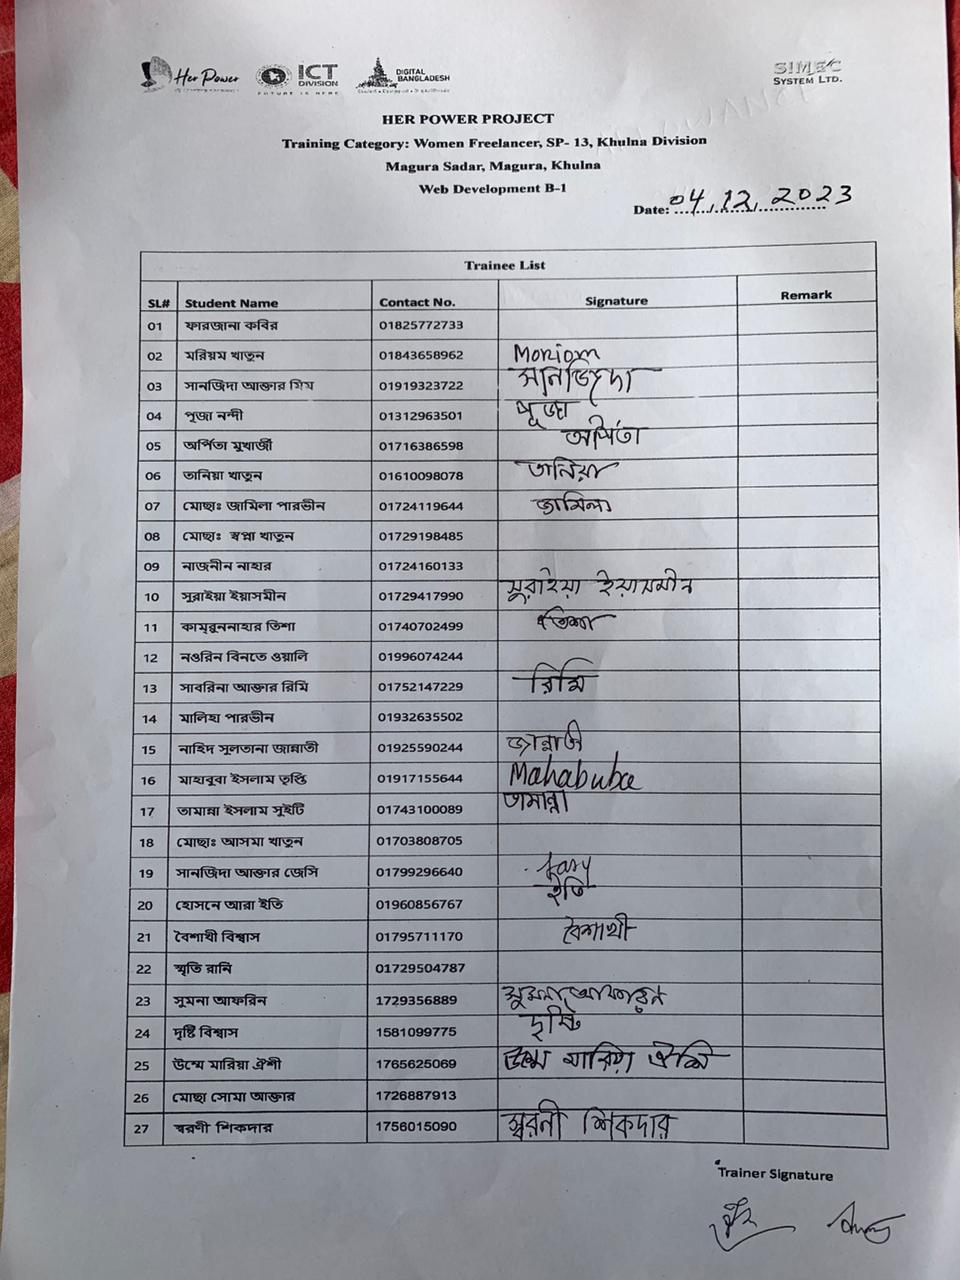 Her Power
ICT DIVISION
FUTURE IS HERE
DIGITAL BANGLADESH
SIMEC SYSTEM LTD.
HER POWER PROJECT
Training Category: Women Freelancer, SP- 13, Khulna Division
Magura Sadar, Magura, Khulna
Web Development B-1
Date: 04.12.2023
Trainee List
SL# Student Name Contact No. Signature Remark
01 ফারজানা কবির 01825772733
02 মরিয়ম খাতুন 01843658962 Moriom
03 সানজিদা আক্তার মিম 01919323722 সানজিদা
04 পূজা নন্দী 01312963501 পূজা
05 অর্পিতা মুখার্জী 01716386598 অর্পিতা
06 তানিয়া খাতুন 01610098078 তানিয়া
07 মোছাঃ জামিলা পারভীন 01724119644 জামিলা
08 মোছাঃ স্বপ্না খাতুন 01729198485
09 নাজনীন নাহার 01724160133
10 সুরাইয়া ইয়াসমীন 01729417990 সুরাইয়া ইয়াসমীন
11 কামরুননাহার তিশা 01740702499 তিশা
12 নওরিন বিনতে ওয়ালি 01996074244
13 সাবরিনা আক্তার রিমি 01752147229 রিমি
14 মালিহা পারভীন 01932635502
15 নাহিদ সুলতানা জান্নাতী 01925590244 জান্নাতী
16 মাহাবুবা ইসলাম তৃপ্তি 01917155644 Mahabuba
17 তামান্না ইসলাম সুইটি 01743100089 তামান্না
18 মোছাঃ আসমা খাতুন 01703808705
19 সানজিদা আক্তার জেসি 01799296640
20 হোসনে আরা ইতি 01960856767 ইতি
21 বৈশাখী বিশ্বাস 01795711170 বৈশাখী
22 স্মৃতি রানি 01729504787
23 সুমনা আফরিন 1729356889 সুমনা আফরিন
24 দৃষ্টি বিশ্বাস 1581099775 দৃষ্টি
25 উম্মে মারিয়া ঐশী 1765625069 উম্মে মারিয়া ঐশি
26 মোছা সোমা আক্তার 1726887913
27 স্বরণী শিকদার 1756015090 স্বরনী শিকদার
Trainer Signature